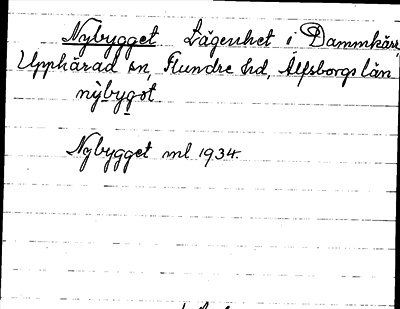 Nybygget Lägenhet i Dammkärr,
Upphärad sn, Flundre hd, Älfsborgs län
nỳbygət
Nybygget ml 1934.